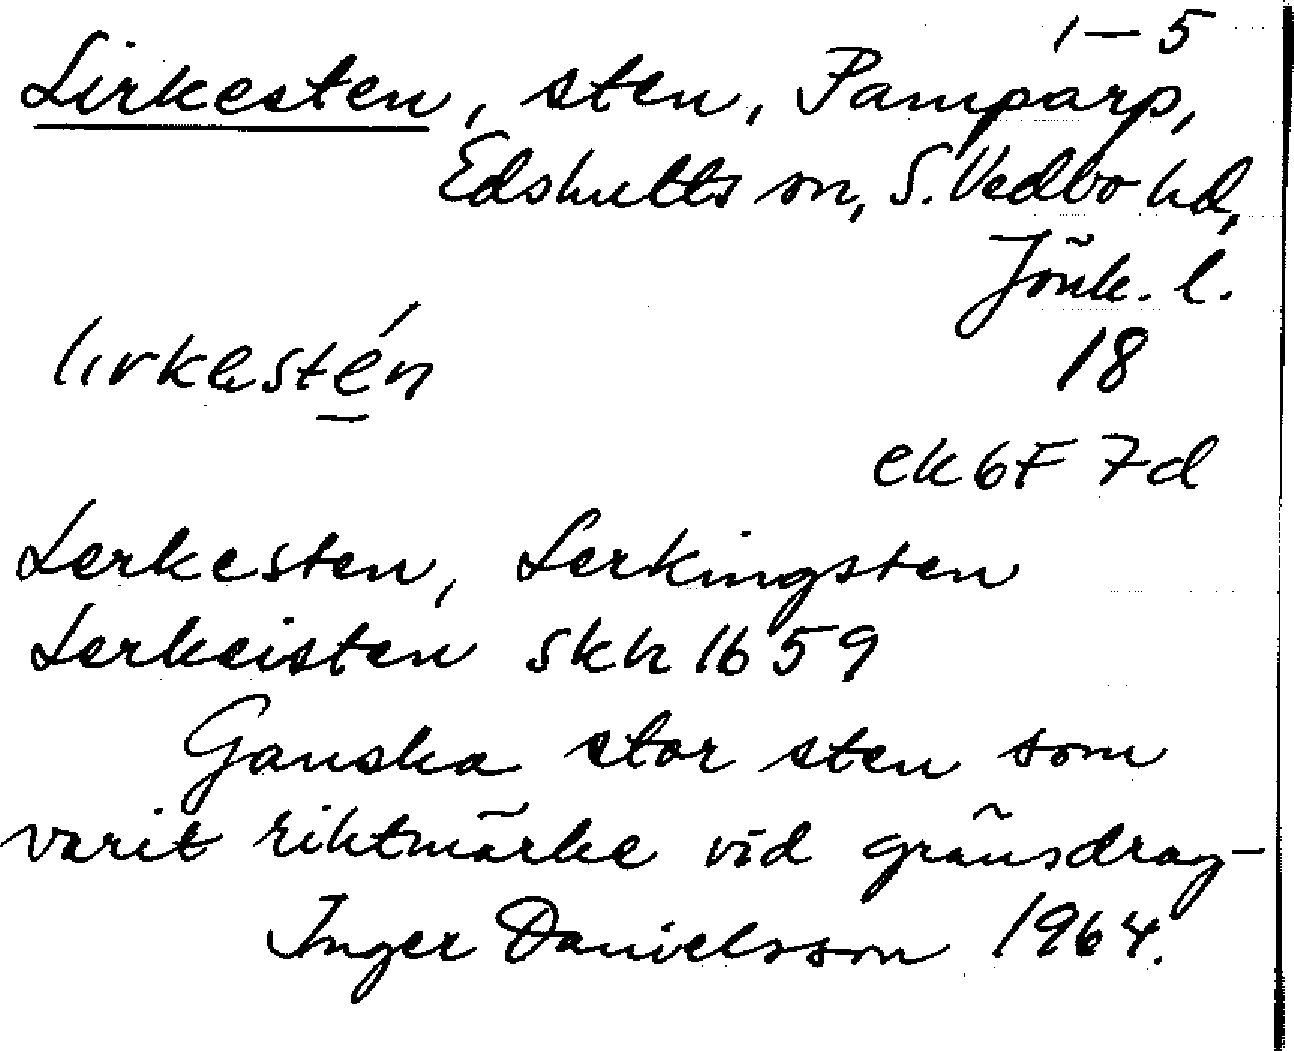 1–5
Lirkesten, sten, Pamparp,
Edshults sn, S. Vedbo hd,
Jönk. l.
lirkasten
18
ek 6F 7d
Lerkesten, Lerkingsten
Lerkeisten skh 1659
Ganska stor sten som
varit riktmärke vid gränsdrag-
Inger Danielsson 1964.